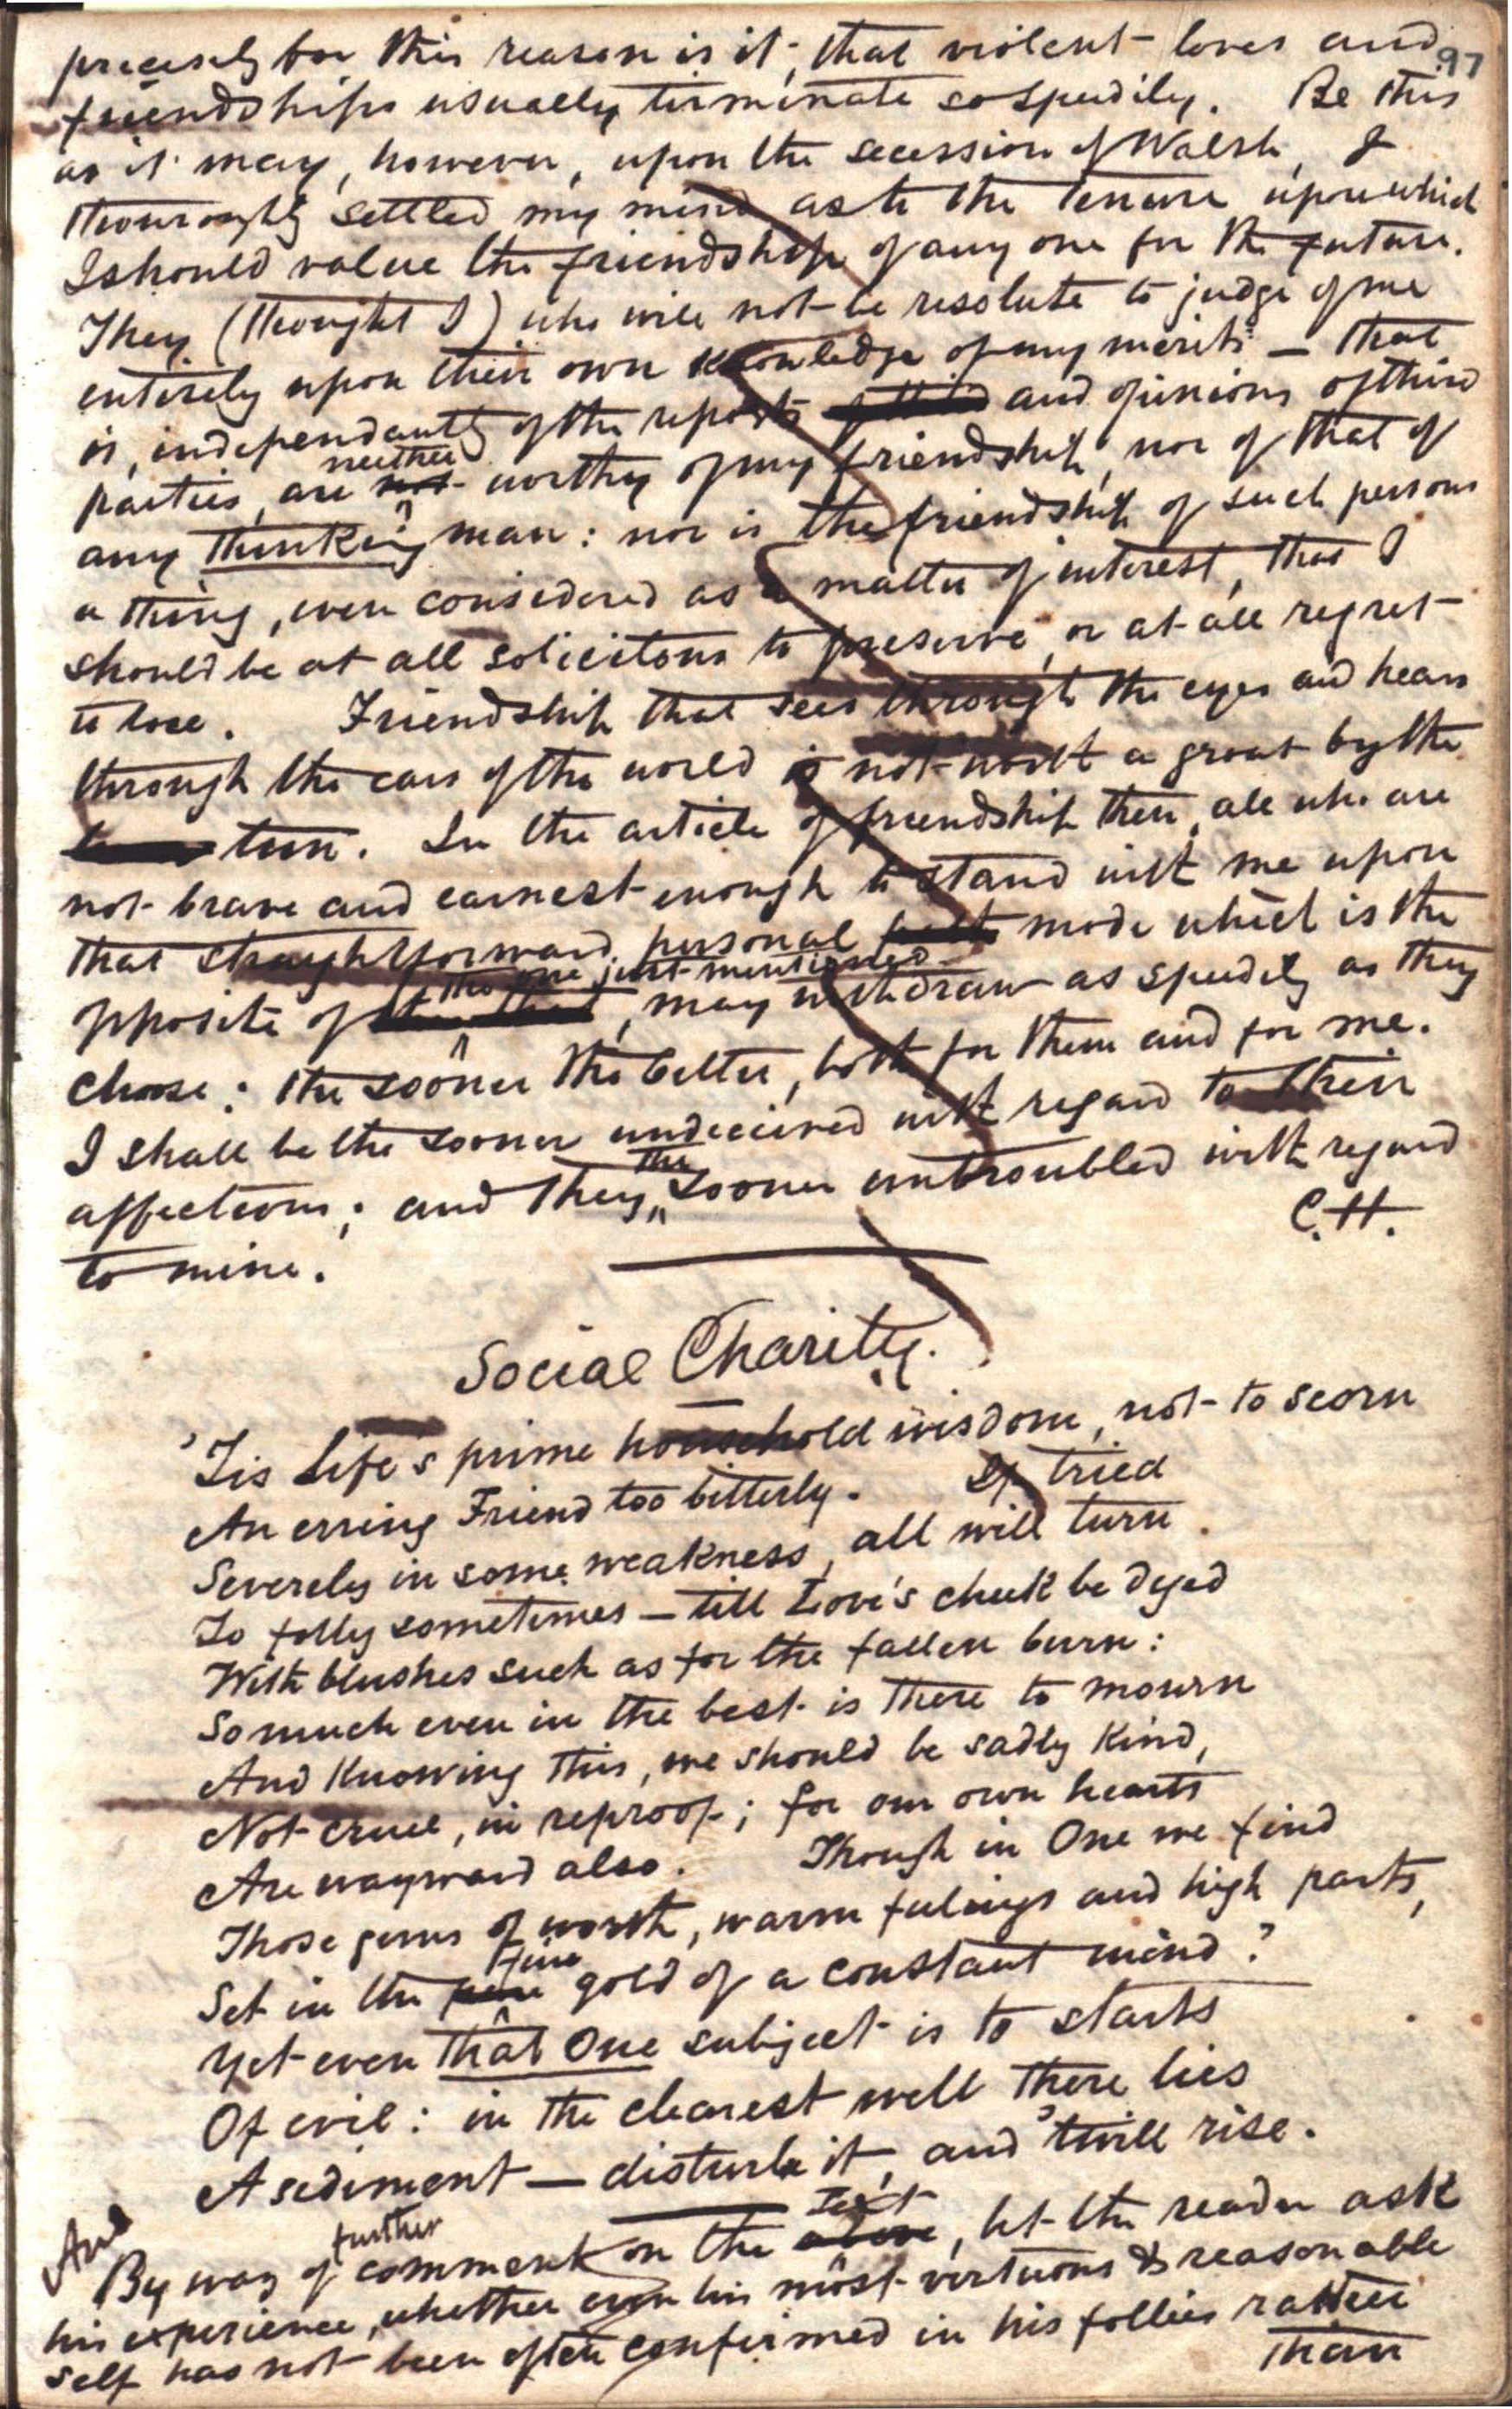 97
precisely for this reason is it, that violent loves and
friendships usually terminate so speedily. Be this
as it may, however, upon the secession of Walsh, I
thouroughly settled my mind as to the tenure upon which
I should value the friendship of any one for the future.
They (thought I) who will not be resolute to judge of me
entirely upon their own knowledge of my merits — that
is, independantly of the reports and opinions of third
neither
parties, are not worthy of my friendship, nor of that of
any thinking man: nor is the friendship of such persons
a thing, even considered as a matter of interest, that I
should be at all solicitous to preserve, or at all regret
to lose. Friendship that sees through the eyes and hears
through the ears of the world is not worth a groat by the
turn. In the article of friendship then, all who are
not brave and earnest enough to stand with me upon
that straightforward, personal mode which is the
the one just mentioned
opposite of, may withdraw as speedily as they
choose: the sooner the better, both for them and for me.
I shall be the sooner undeceived with regard to their
the
affections; and they sooner untroubled with regard
to mine. C.H.
Social Charity.
'Tis Life's prime household wisdom, not to scorn
An erring Friend too bitterly. If tried
Severely in some weakness, all will turn
To folly sometimes — till Love's cheek be dyed
With blushes such as for the fallen burn:
So much even in the best is there to mourn
And Knowing this, we should be sadly Kind,
Not cruel, in reproof; for our own hearts
Are wayward also. Though in One we find
Those gems of worth, warm feelings and high parts,
fine
Set in the pure gold of a constant mind?
Yet even that One subject is to starts
Of evil: in the clearest well there lies
A sediment — disturb it, and 'twill rise.
And further text
By way of comment on the above, let the reader ask
his experience, whether even his most virtuous & reasonable
self has not been often confirmed in his follies rather
than